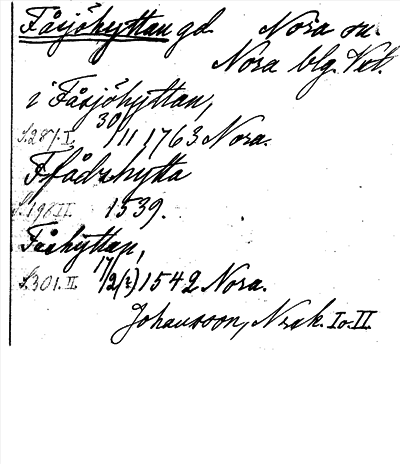 Fåsjöhyttan gd. Nora sn.
Nora blg. Vst.
i Fåsjöhyttan,
S.287.I. 30/11 1763 Nora.
Ffådzhytta
S.198 II. 1539.
Fåshyttan,
S.301.II. 17/2(?) 1542 Nora.
Johansson, Nrak. I o. II.